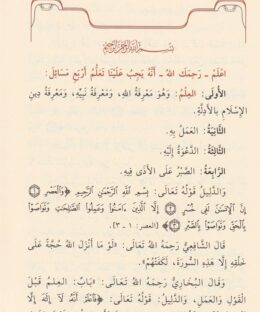 بِسْمِ اللَّهِ الرَّحْمَنِ الرَّحِيمِ
اعْلَمْ ـ رَحِمَكَ اللهُ ـ أَنَّهُ يَجِبُ عَلَيْنَا تَعَلُّمُ أَرْبَعِ مَسَائِلَ:
الأُولَى: العِلْمُ: وَهُوَ مَعْرِفَةُ اللهِ، وَمَعْرِفَةُ نَبِيِّهِ، وَمَعْرِفَةُ دِينِ
الإِسْلَامِ بِالأَدِلَّةِ.
الثَّانِيَةُ: العَمَلُ بِهِ.
الثَّالِثَةُ: الدَّعْوَةُ إِلَيْهِ.
الرَّابِعَةُ: الصَّبْرُ عَلَى الأَذَى فِيهِ.
وَالدَّلِيلُ قَوْلُهُ تَعَالَى: بِسْمِ اللهِ الرَّحْمَنِ الرَّحِيمِ ﴿وَالْعَصْرِ ۝١
إِنَّ الْإِنسَانَ لَفِي خُسْرٍ ۝٢ إِلَّا الَّذِينَ ءَامَنُوا وَعَمِلُوا الصَّالِحَاتِ وَتَوَاصَوْا
بِالْحَقِّ وَتَوَاصَوْا بِالصَّبْرِ ۝٣﴾ [العصر: ١ ـ ٣].
قَالَ الشَّافِعِيُّ رَحِمَهُ اللهُ تَعَالَى: «لَوْ مَا أَنْزَلَ اللهُ حُجَّةً عَلَى
خَلْقِهِ إِلَّا هَذِهِ السُّورَةَ، لَكَفَتْهُمْ».
وَقَالَ البُخَارِيُّ رَحِمَهُ اللهُ تَعَالَى: «بَابٌ: العِلْمُ قَبْلَ
القَوْلِ وَالعَمَلِ، وَالدَّلِيلُ: قَوْلُهُ تَعَالَى: ﴿فَاعْلَمْ أَنَّهُ لَا إِلَهَ إِلَّا